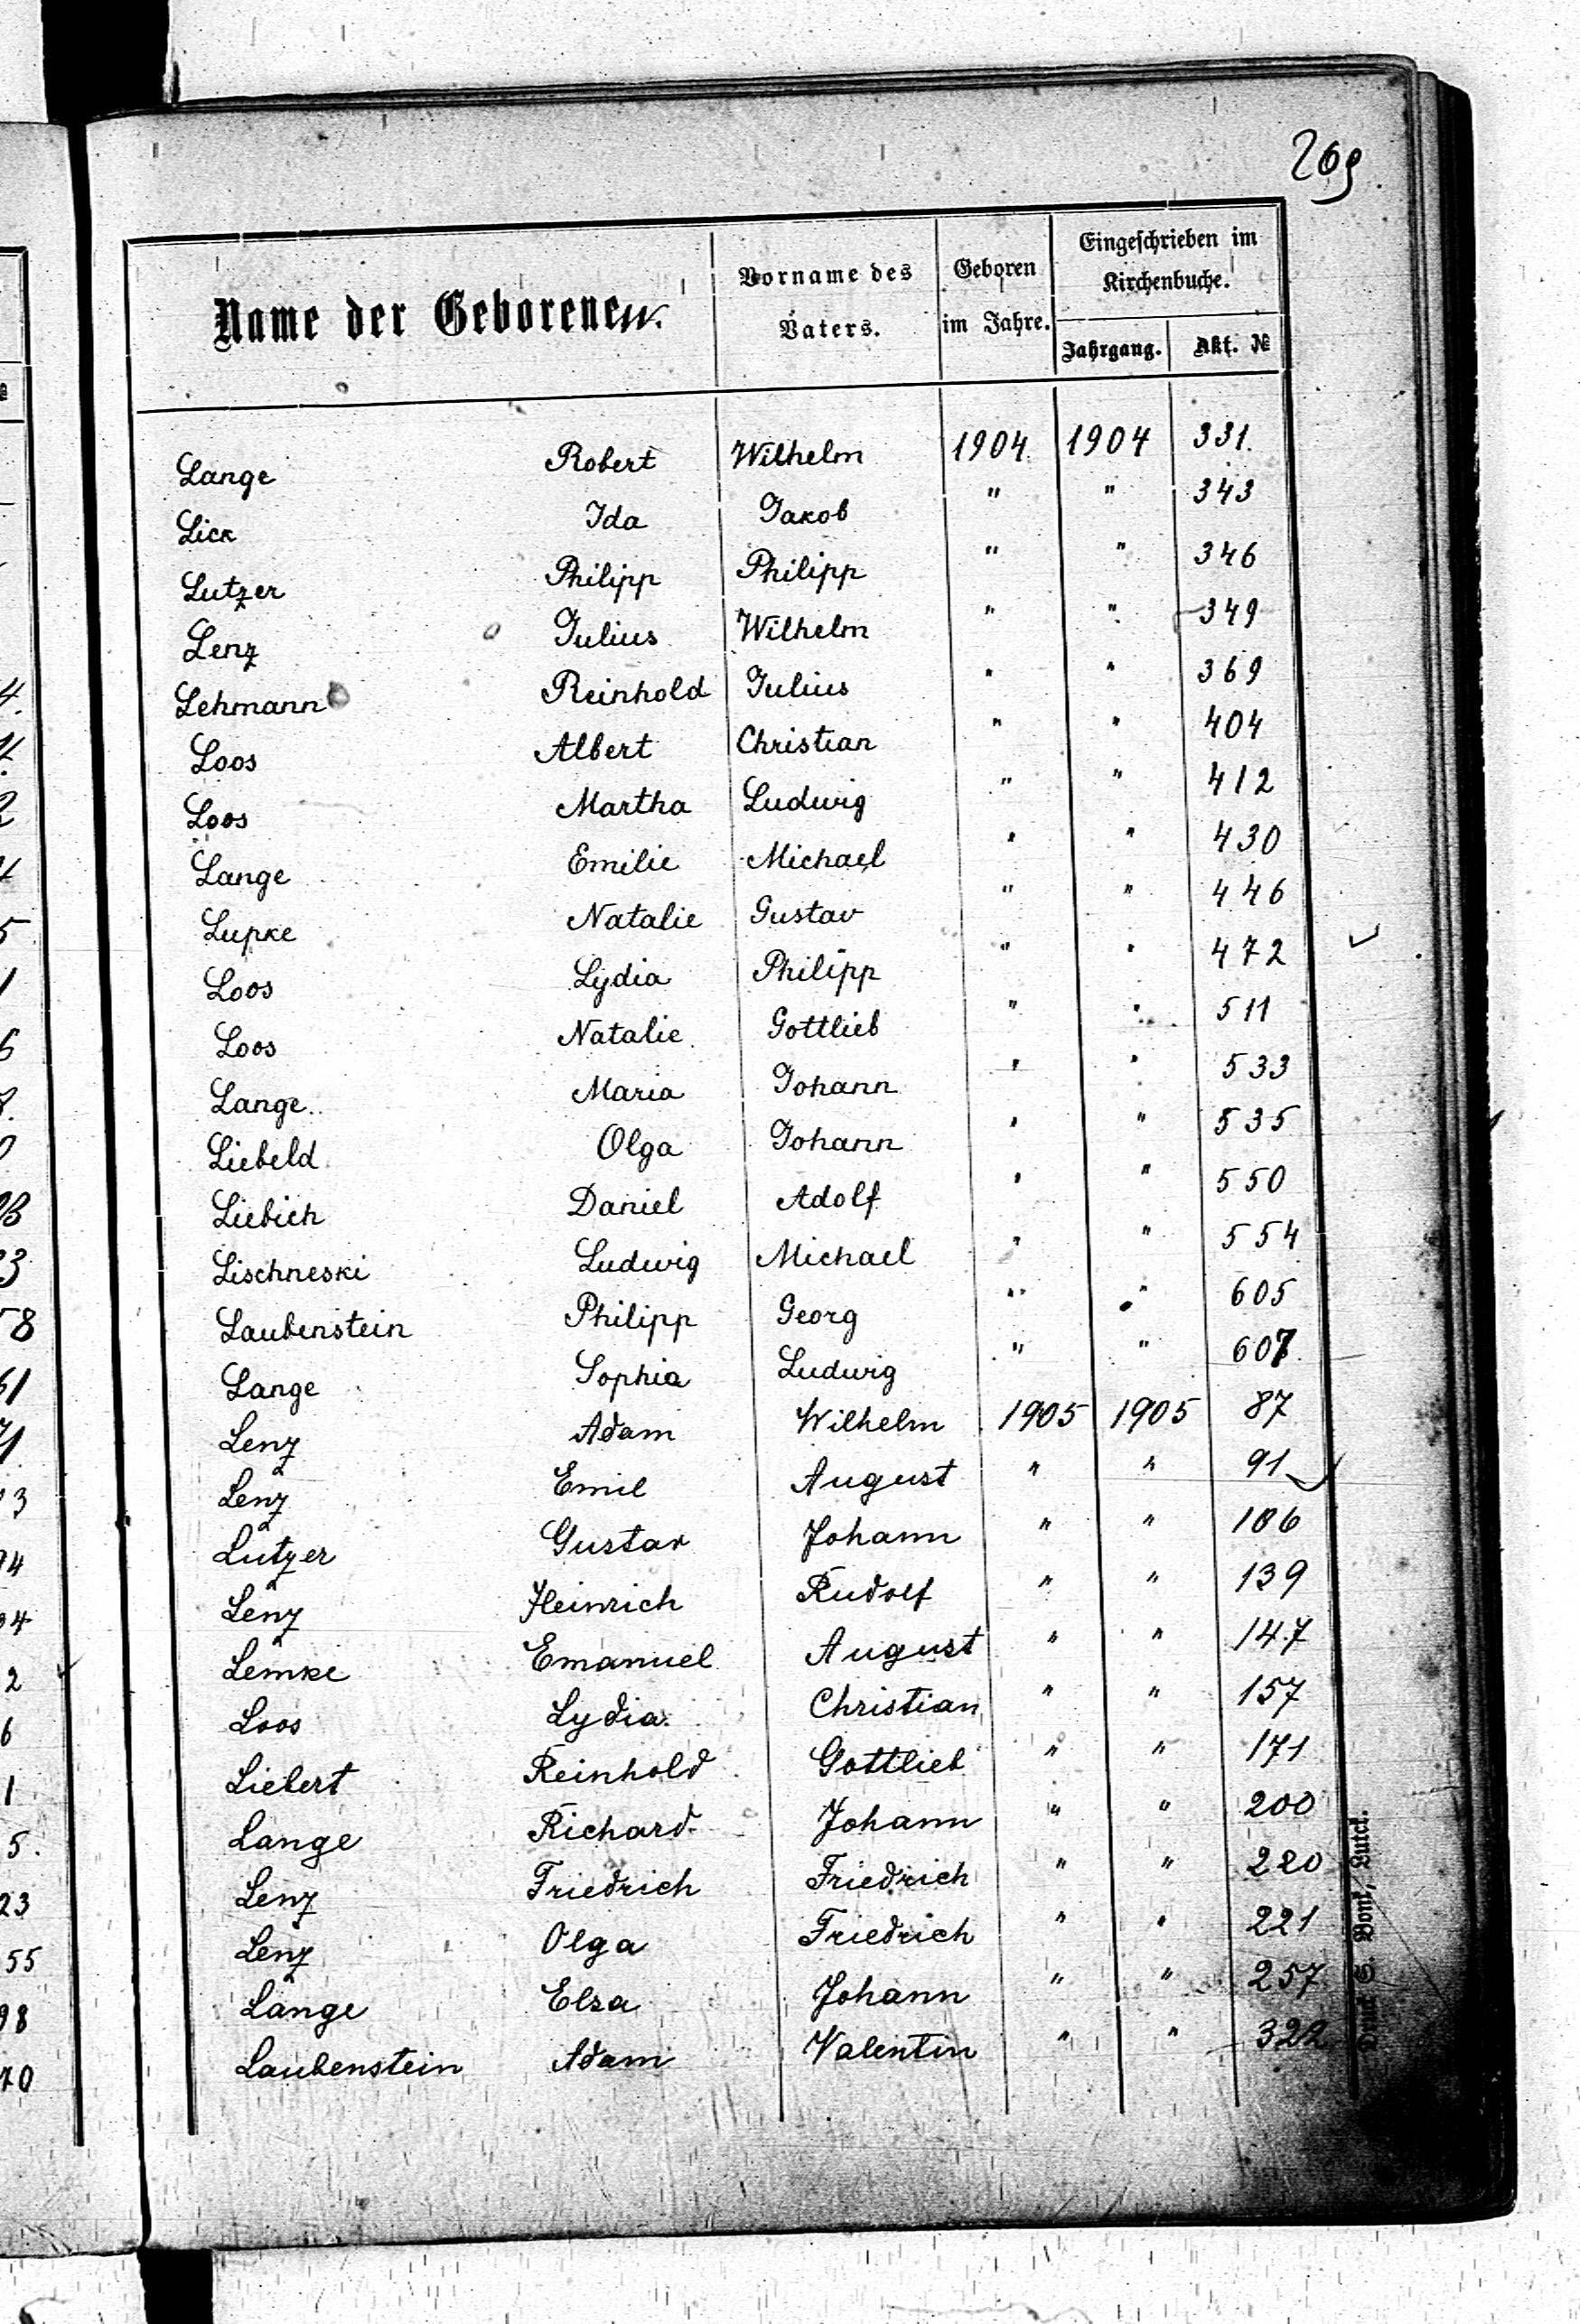 269
Name der Geborenen.
Vorname des Vaters.
Geboren im Jahre.
Eingeschrieben im Kirchenbuche.
Jahrgang. Akt. №
Lange Robert Wilhelm 1904 1904 331.
Lick Ida Jakob " " 343
Lutzer Philipp Philipp " " 346
Lenz Julius Wilhelm " " 349
Lehmann Reinhold Julius " " 369
Loos Albert Christian " " 404
Loos Martha Ludwig " " 412
Lange Emilie Michael " " 430
Lupke Natalie Gustav " " 446
Loos Lydia Philipp " " 472
Loos Natalie Gottlieb " " 511
Lange Maria Johann " " 533
Liebeld Olga Johann " " 535
Liebich Daniel Adolf " " 550
Lischneski Ludwig Michael " " 554
Laubenstein Philipp Georg " " 605
Lange Sophia Ludwig " " 607
Lenz Adam Wilhelm 1905 1905 87
Lenz Emil August " " 91
Lutzer Gustav Johann " " 106
Lenz Heinrich Rudolf " " 139
Lemke Emanuel August " " 147
Loos Lydia Christian " " 157
Liebert Reinhold Gottlieb " " 171
Lange Richard Johann " " 200
Lenz Friedrich Friedrich " " 220
Lenz Olga Friedrich " " 221
Lange Elsa Johann " " 257
Laubenstein Adam Valentin " " 322